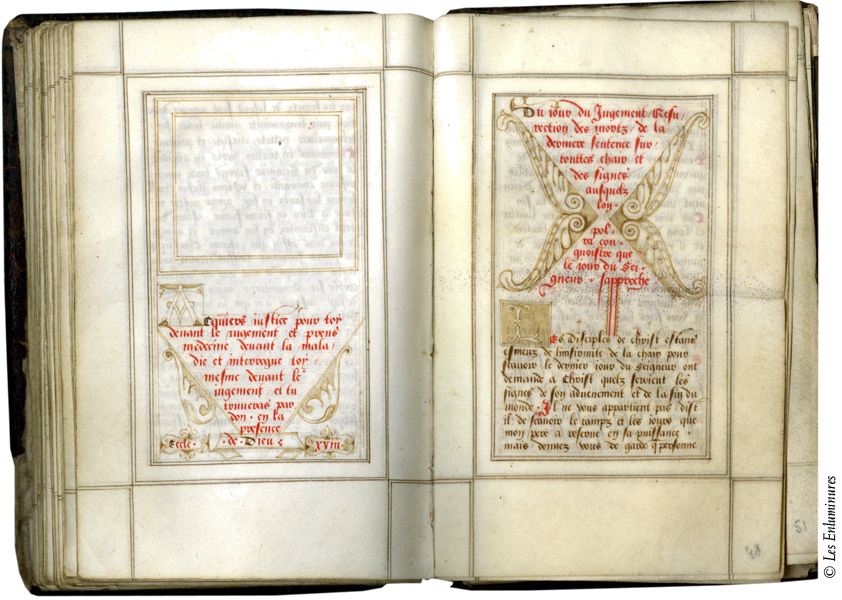 Acquiers iustice pour toy
devant le iugement et prens
medecine devant la mala/
die et interrogue toy
mesme devant le
iugement et tu
trouveras par
don en la
presence
Eccle · de Dieu · xviii
Du iour du Jugement Resu/
rection des mortz / de la
derniere sentence sur
touttes chair et
des signes
ausquelz
lon
pol
ra con
gnoistre que
le iour du Sei
gneur sapproche
Les Disciples de christ estans
esmeuz de linfirmite de la chair pour
scavoir le dernier iour du Seigneur ont
demande a Christ quelz seroient les
signes de son advenement et de la fin du
monde / Il ne vous appartient pas dist
il de scavoir le tampz et les iours que
mon pere a reserve en sa puissance
mais donnez vous de garde q personne
48
51
© Les Enluminures